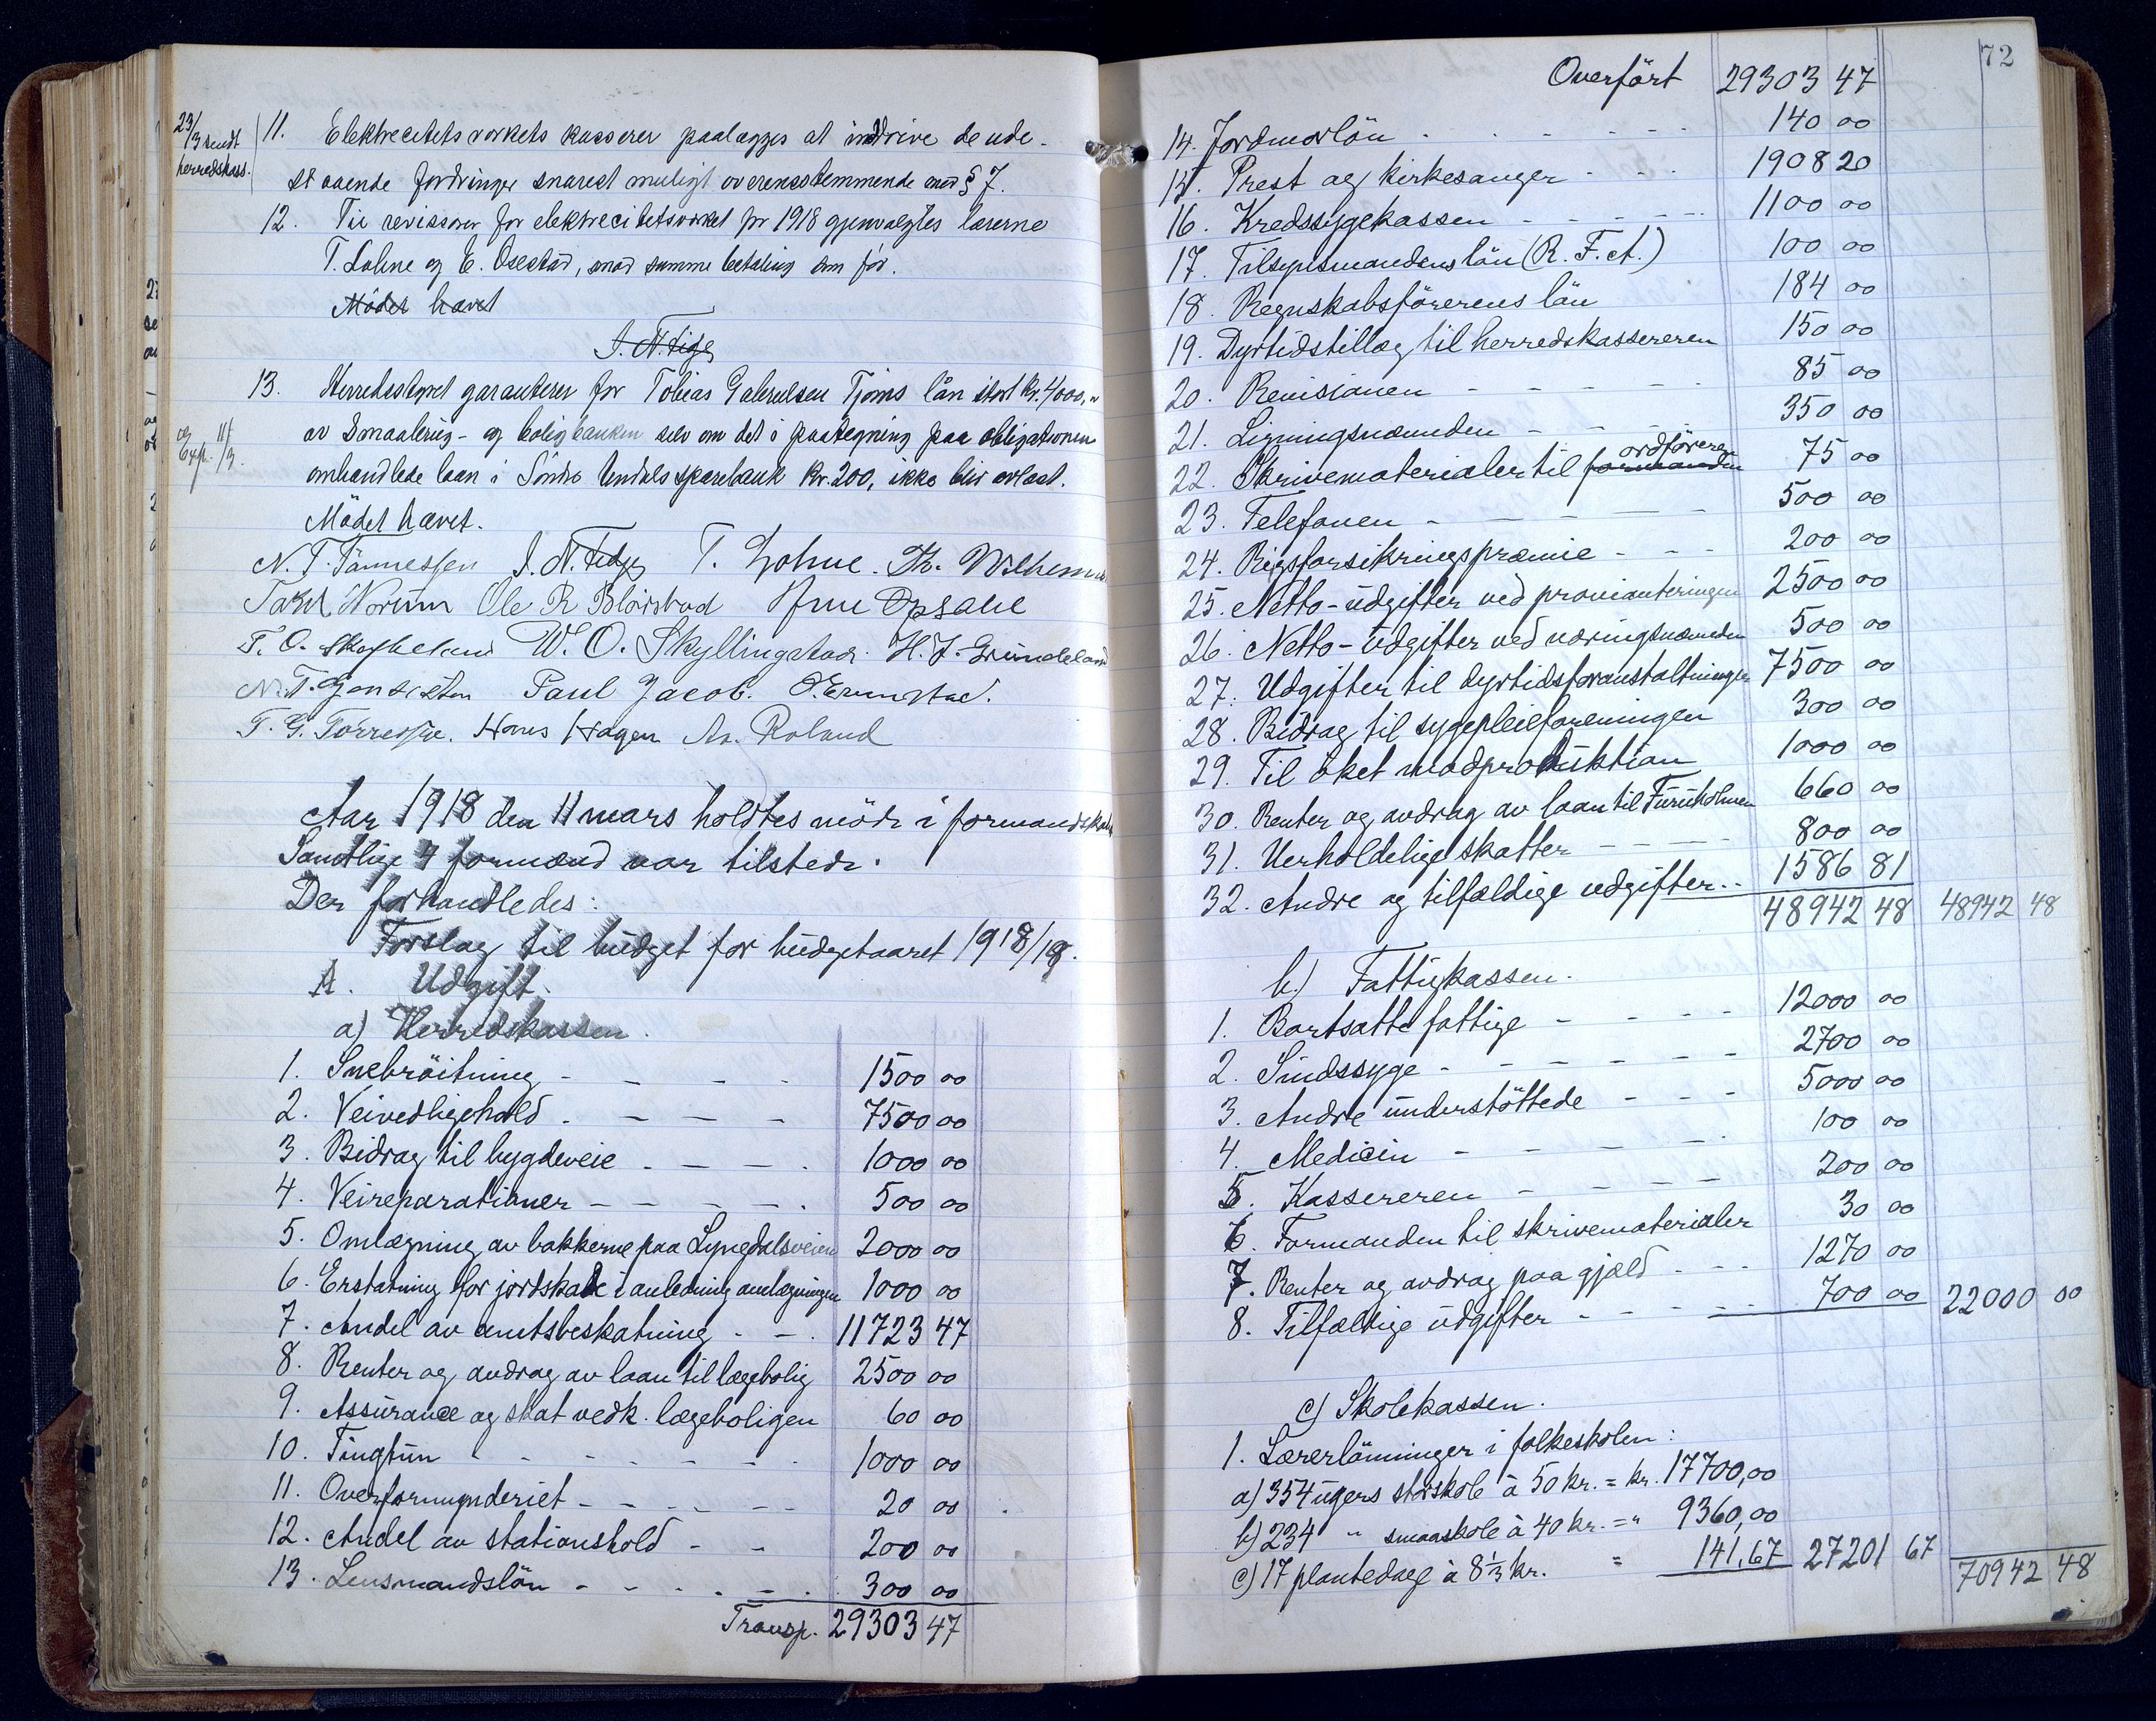 23/3 sendt
herredskass.
11. Elektrecitetsverkets kasserer paalægges at inddrive de ude-
staaende fordringer snarest muligt overensstemmende med § 7.
12. Til revisorer for elektrecitetsverket pr 1918 gjenvalgtes lærerne
T. Lohne og E. Osestad, mod samme betaling som før.
Mödet hævet
S. N. Fige
13. Herredsstyret garanterer for Tobias Gabrielsen Tjoms lån stort kr. 4000,"
Exp. 11/3.
av Smaabrug- og boligbanken selv om det i paategning paa obligationen
omhandlede laan i Söndre Undals sparebank kr. 200, ikke blir avlast.
Mödet hævet.
N. T. Tönnessen T. Lohne. Th. Wilhemsen
Ole R Blörstad Opsahl
T. O. W. O. Skyllingstad. H. J. Gründeland
N. T. Paul Jacob.
T. G. Hans Hagen As. Roland
Aar 1918 den 11 mars holdtes möde i formandskabet
Samtlige 4 formænd var tilstede.
Der forhandledes:
Forslag til budget for budgetaaret 1918/19.
A. Udgift.
a) Herredskassen.
1. Snebröitning - - - - 1500 00
2. Veivedligehold - - - - 7500 00
3. Bidrag til bygdeveie - - - - 1000 00
4. Veireparationer - - - - 500 00
5. Omlægning av bakkerne paa Lyngdalsveien 2000 00
6. Erstatning for jordskade i anledning omlægningen 1000 00
7. Andel av amtsbeskatning - - 11723 47
8. Renter og avdrag av laan til lægebolig 2500 00
9. Assurance og skat vedk. lægeboligen 60 00
10. Tingtun - - - - - - 1000 00
11. Overformynderiet - - - - - 20 00
12. Andel av stationshold - - 200 00
13. Lensmandslön - - - - - 300 00
Transp. 29303 47
72
Overfört 29303 47
14. Jordmorlön - - - - - 140 00
15. Prest og kirkesanger - - - 1908 20
16. Kredssygekassen - - - - - 1100 00
17. Tilsynsmandens lön (R. F. A.) 100 00
18. Regnskabsförerens lön 184 00
19. Dyrtidstillæg til herredskassereren 150 00
20. Revisionen - - - - - 85 00
21. Ligningsnævnden - - - - 350 00
22. Skrivematerialer til formanden ordförere 75 00
23. Telefonen - - - - - 500 00
24. Rigsforsikringspræmie - - - 200 00
25. Netto-udgifter ved provianteringen 2500 00
26. Netto-udgifter ved næringsnævnden 500 00
27. Udgifter til dyrtidsforanstaltninger 7500 00
28. Bidrag til sygepleieforeningen 300 00
29. Til öket madproduktion 1000 00
30. Renter og avdrag av laan til Furuholmen 660 00
31. Uerholdelige skatter - - - - 800 00
32. Andre og tilfældige udgifter.. 1586 81
48942 48 48942 48
b) Fattigkassen.
1. Bortsatte fattige - - - - 12000 00
2. Sindssyge - - - - - - 2700 00
3. Andre understöttede - - - 5000 00
4. Medicin - - - - - 100 00
5. Kassereren - - - - 200 00
6. Formanden til skrivematerialer 30 00
7. Renter og avdrag paa gjæld - - - 1270 00
8. Tilfældige udgifter - - - - - 700 00 22000 00
c) Skolekassen.
1. Lærerlönninger i folkeskolen:
a) 354 ugers storskole à 50 kr. = kr. 17700,00
b) 234 " smaaskole à 40 kr. = " 9360,00
c) 17 plantedage à 8 1/3 kr. = 141,67 27201 67
70942 48